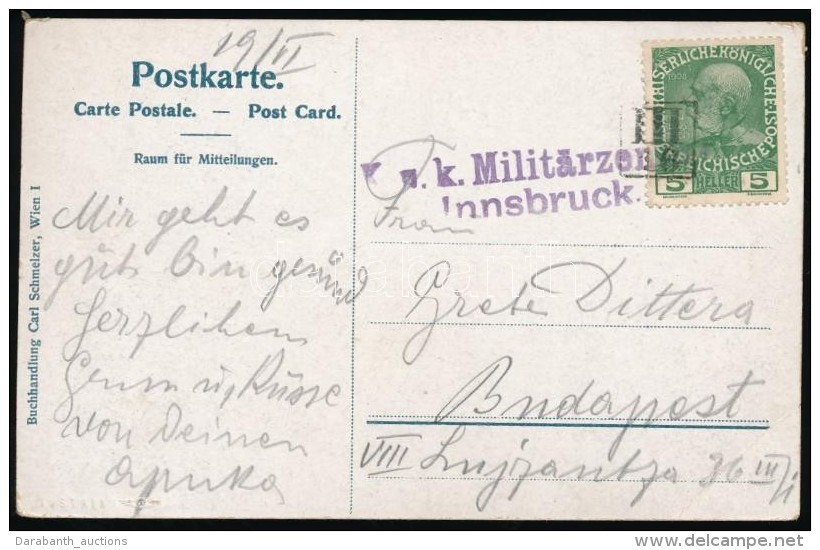 19/II
Postkarte.
Carte Postale. — Post Card.
Raum für Mitteilungen.
Mir geht es
gut bin gesund
Herzlichen
Gruss u, Küsse
von Deinen
Apuka
Buchhandlung Carl Schmelzer, Wien I
K. u. k. Militärzen
Innsbruck.
Frau
Grete Dittera
Budapest
VIII Lujzautza 36 III/1
KAISERLICHEKÖNIGLICHE
ÖSTERREICHISCHEPOST
1908
5 HELLER 5
darabanth
Darabanth_auctions
delcampe.net